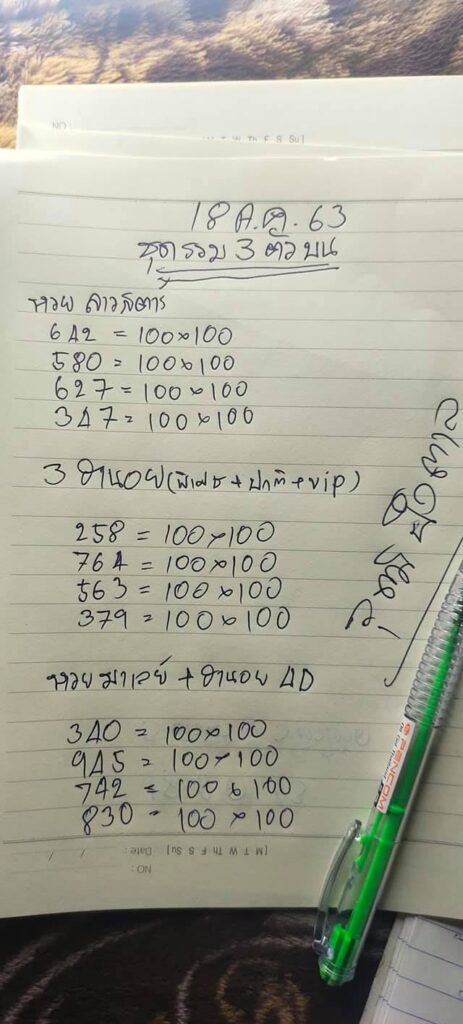 NO:
M T W Th F S Su]
18 ส.ค. 63
ชุดรวม 3 ตัวบน
หวย ลาวสตาร
642 = 100×100
580 = 100×100
627 = 100×100
347 = 100×100
3 ฮานอย (พิเศษ + ปกติ + vip)
258 = 100×100
764 = 100×100
563 = 100×100
379 = 100×100
หวย มาเลย์ + ฮานอย 4D
340 = 100×100
945 = 100×100
742 = 100×100
830 = 100×100
[M T W Th F S Su] Date: / /
NO:
PENCOM